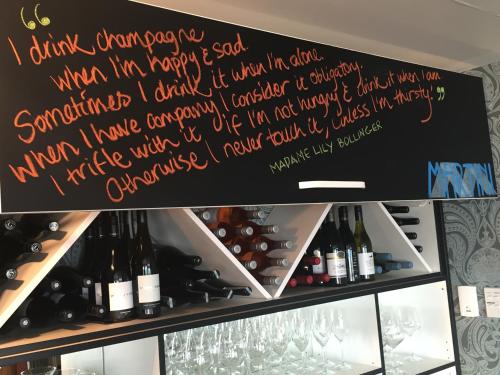 “ I drink champagne
when I'm happy & sad.
Sometimes I drink it when I'm alone.
When I have company I consider it obligatory.
I trifle with it if I'm not hungry & drink it when I am.
Otherwise I never touch it, unless I'm thirsty. ”
MADAME LILY BOLLINGER
MARTINI